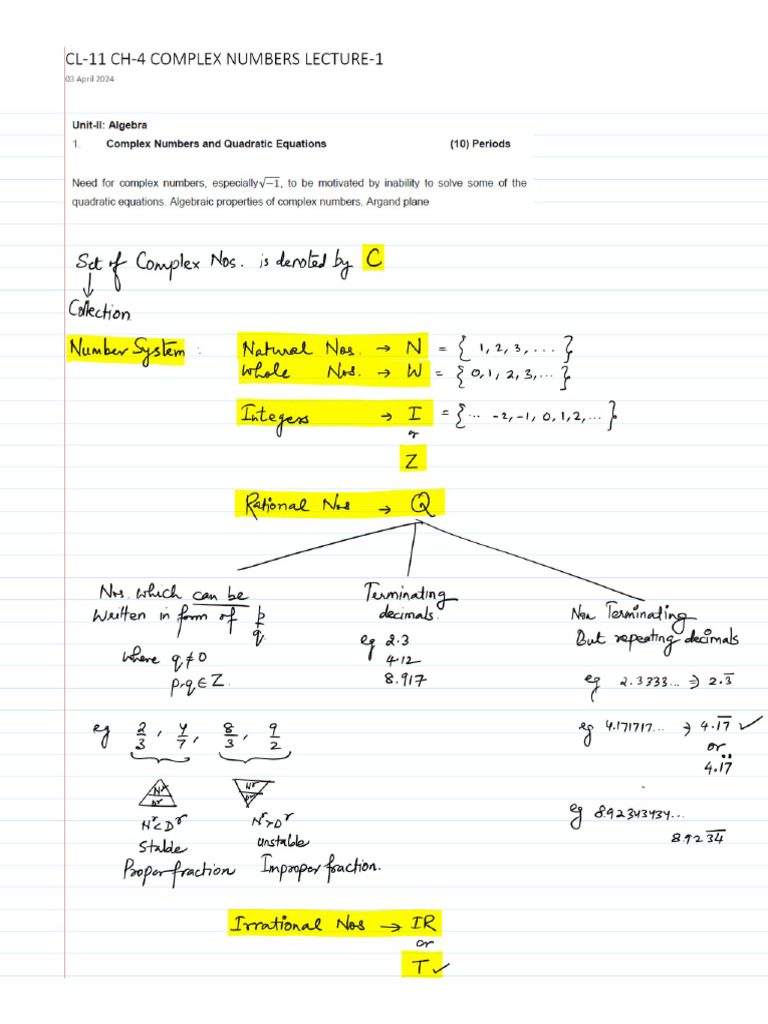 CL-11 CH-4 COMPLEX NUMBERS LECTURE-1
03 April 2024
Unit-II: Algebra
1. Complex Numbers and Quadratic Equations (10) Periods
Need for complex numbers, especially √−1, to be motivated by inability to solve some of the
quadratic equations. Algebraic properties of complex numbers. Argand plane
Set of Complex Nos. is denoted by C
↓
Collection
Number System : Natural Nos. → N = { 1, 2, 3, ... }
Whole Nos. → W = { 0, 1, 2, 3, ... }
Integers → I = { ... -2, -1, 0, 1, 2, ... }
or
Z
Rational Nos → Q
Nos. which can be
written in form of p/q
where q ≠ 0
p, q ∈ Z.
eg 2/3 , 4/7 , 8/3 , 9/2
Nr Dr
Nr < Dr
Stable
Proper fraction
Nr Dr
Nr > Dr
unstable
Improper fraction.
Terminating
decimals.
eg 2.3
4.12
8.917
Non Terminating
But repeating decimals
eg 2.3333... ⇒ 2.3̅
eg 4.171717... ⇒ 4.1̅7̅ ✓
or
4.1̇7̇
eg 8.92343434...
8.923̅4̅
Irrational Nos → IR
or
T ✓